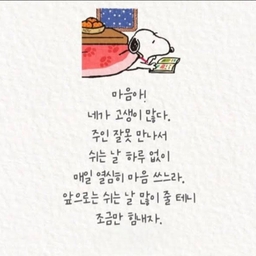 마음아!
네가 고생이 많다.
주인 잘못 만나서
쉬는 날 하루 없이
매일 열심히 마음 쓰느라.
앞으로는 쉬는 날 많이 줄 테니
조금만 힘내자.